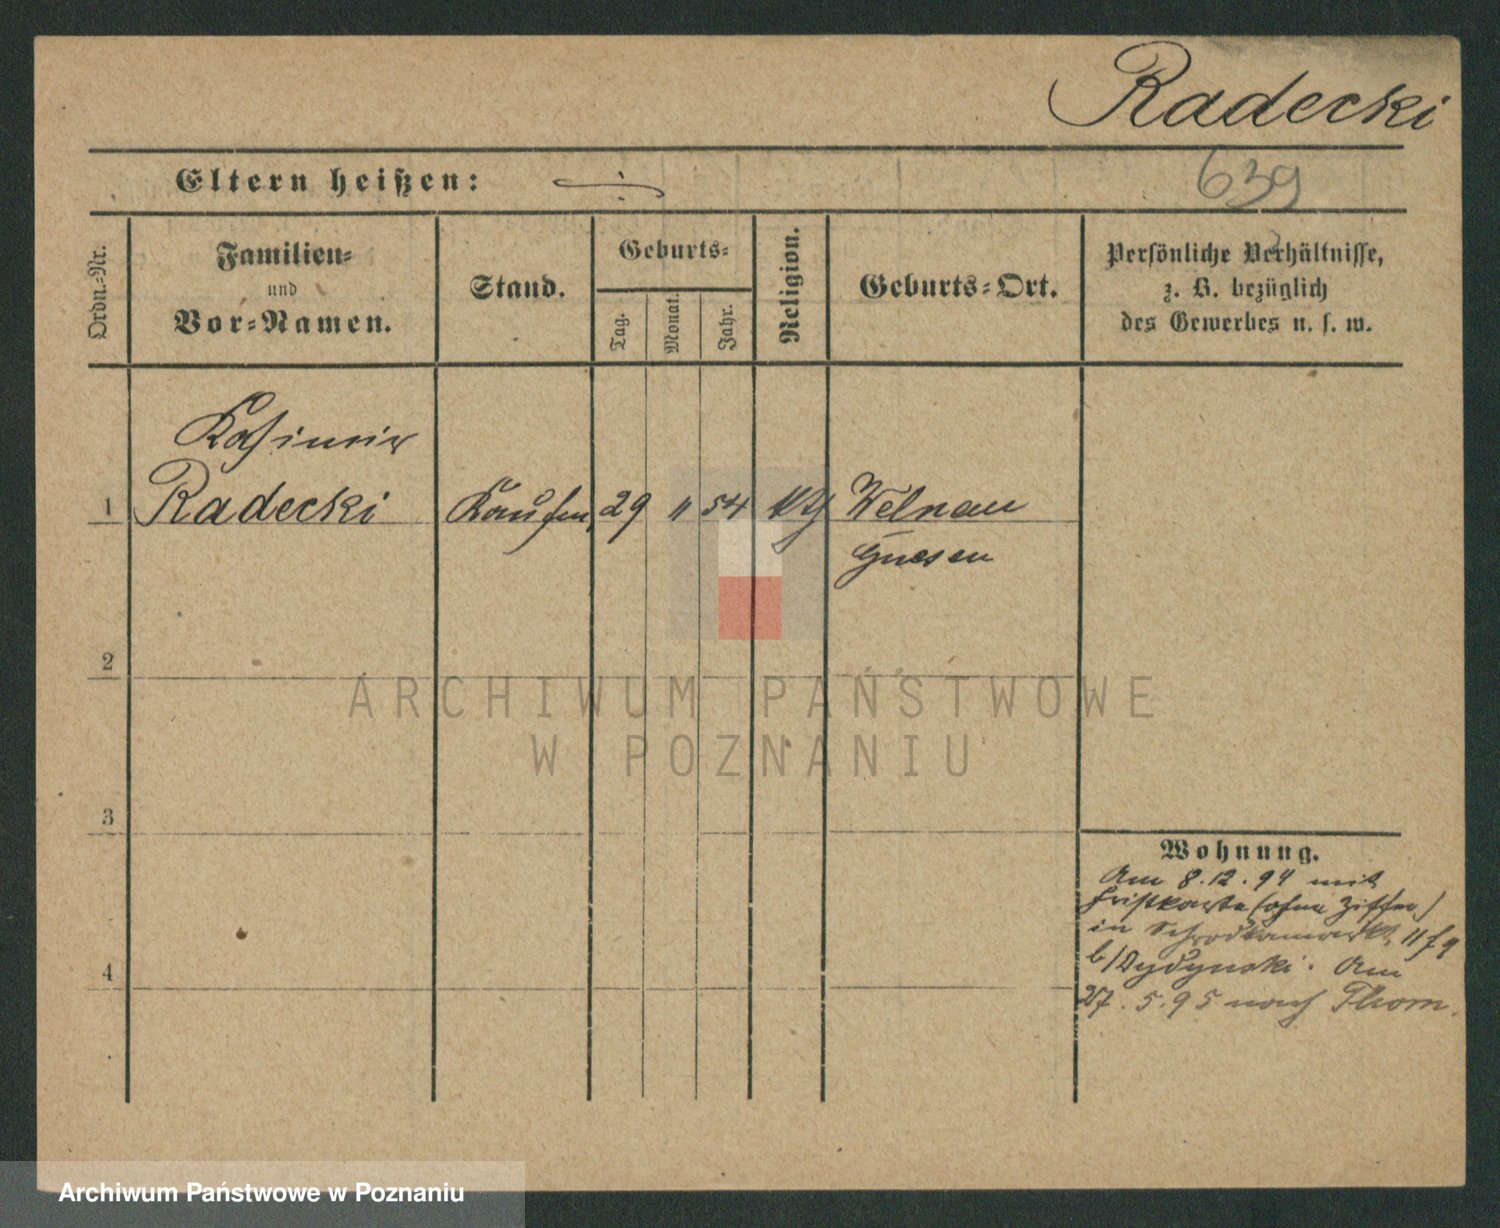 Radecki
639
Eltern heißen: ÷
Ordn.-Nr.
Familien-
und
Vor-Namen.
Stand.
Geburts-
Tag.
Monat.
Jahr.
Religion.
Geburts-Ort.
Persönliche Verhältnisse,
z. B. bezüglich
des Gewerbes u. s. w.
Kasimir
1 Radecki Kaufm. 29 11 54 kth Welnau
Gnesen
2
3
4
Wohnung.
Am 8.12.94 mit
Fristkarte (ohne Ziffer)
in Schrodkamarkt 11
b/Dydynski. Am
27.5.95 nach Thorn.
ARCHIWUM PAŃSTWOWE
W POZNANIU
Archiwum Państwowe w Poznaniu